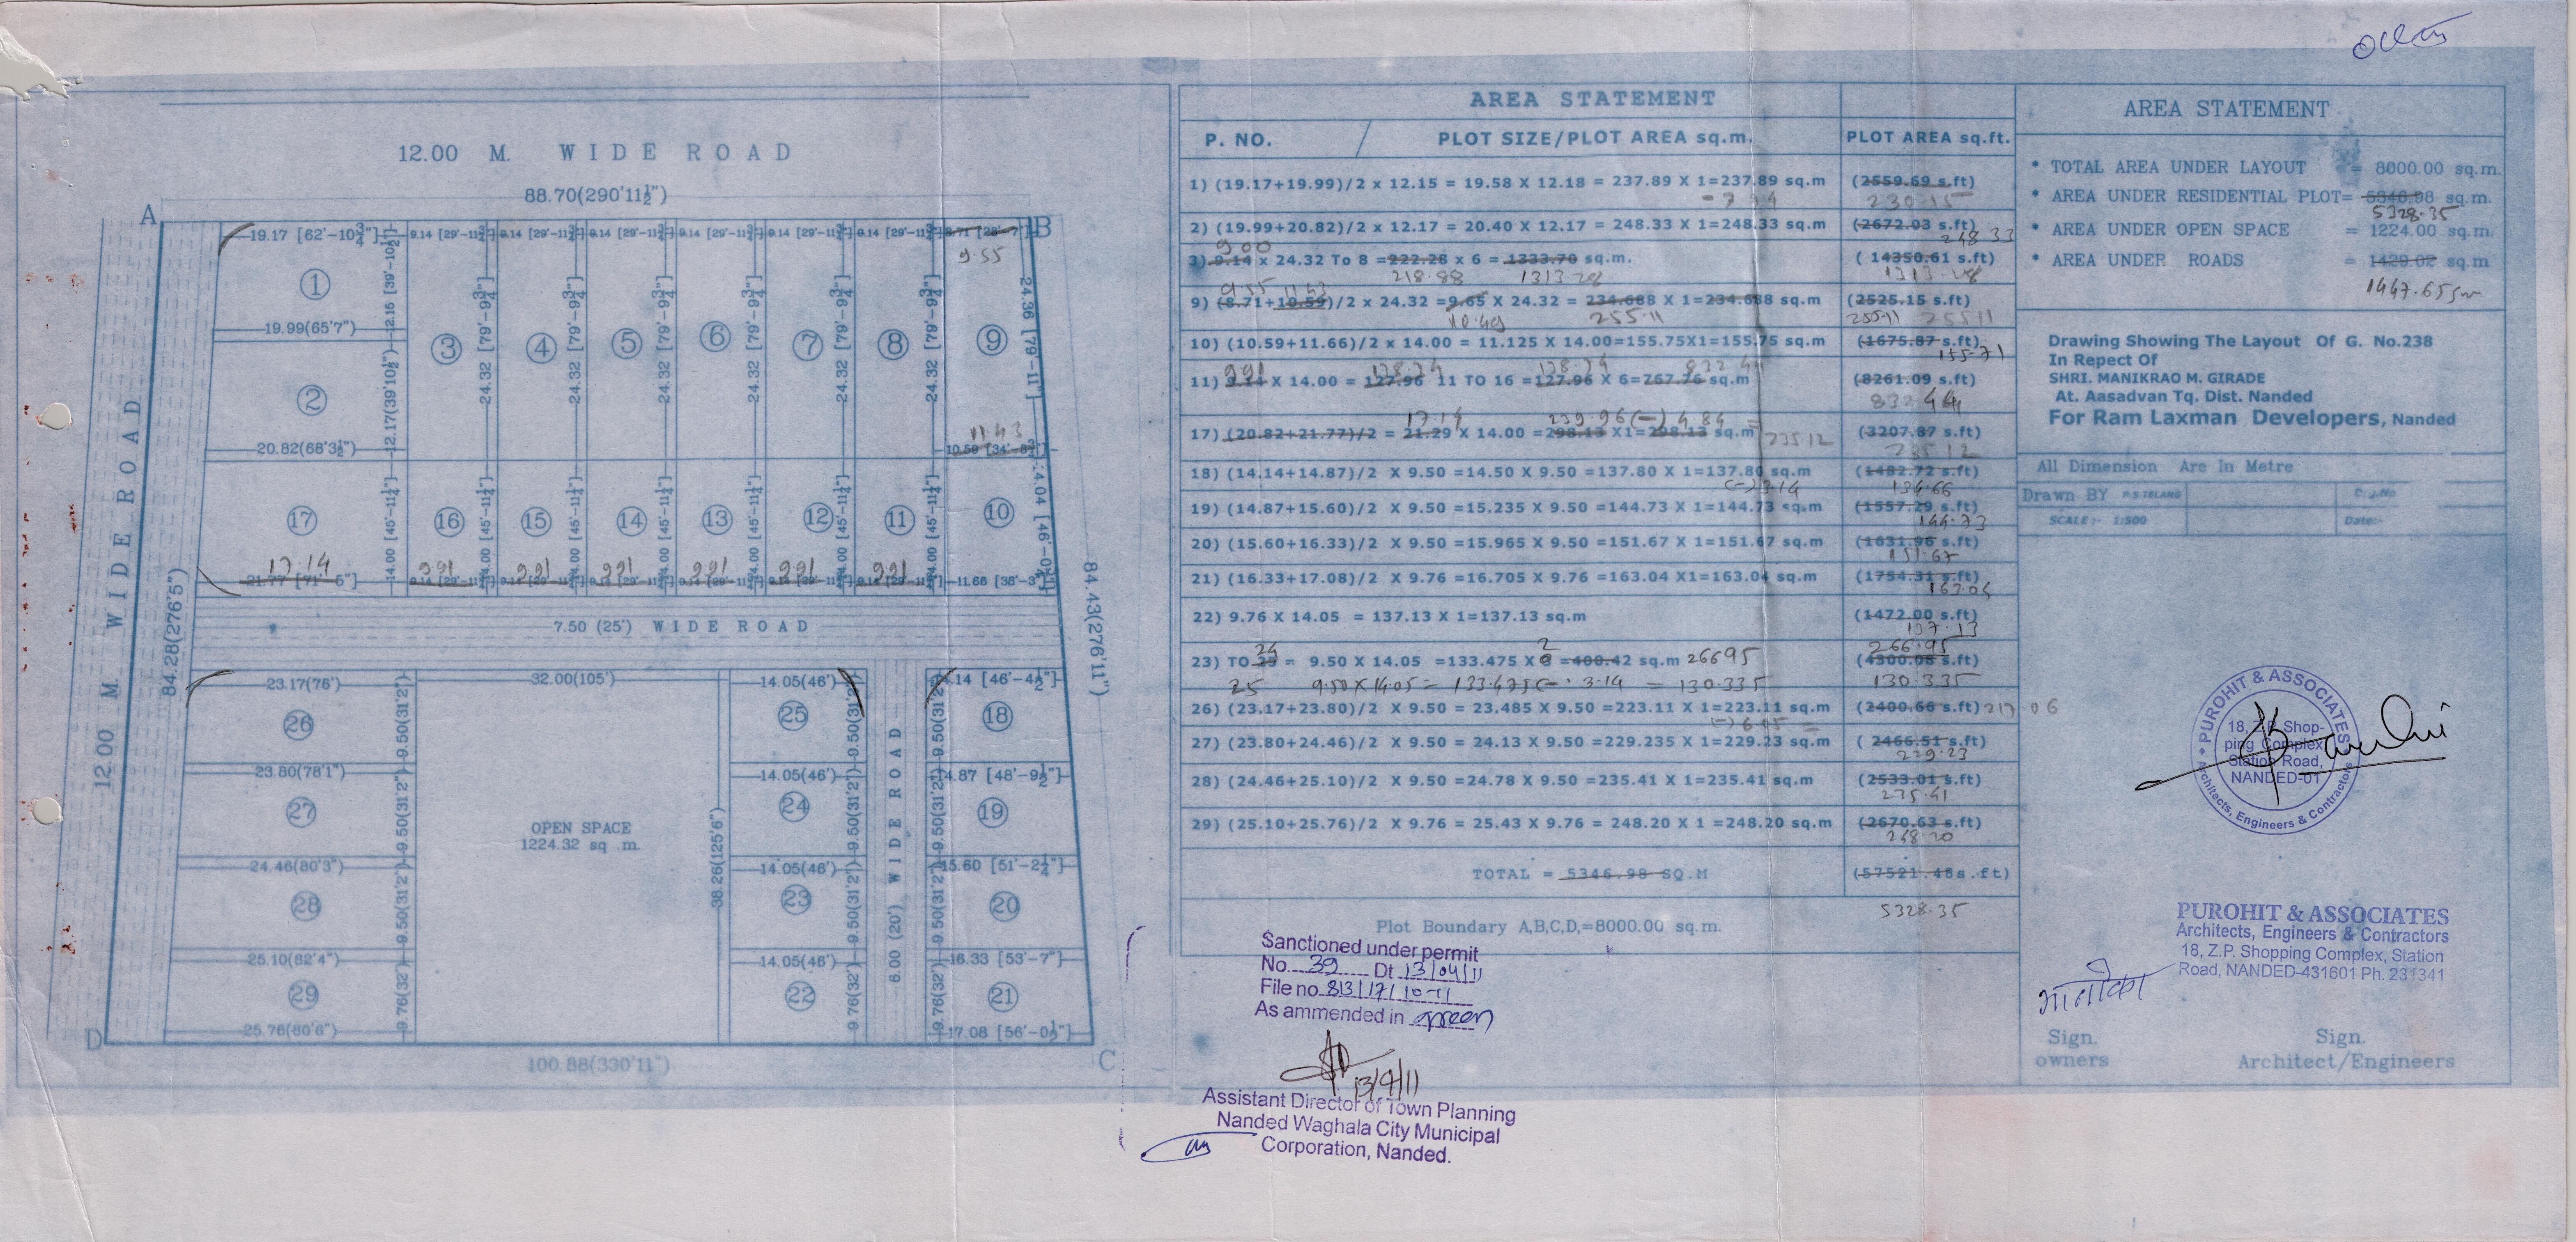 ocean
12.00 M. WIDE ROAD
88.70(290'11½")
A
B
19.17 [62'-10¾"]
9.14 [29'-11¾"]
9.14 [29'-11¾"]
9.14 [29'-11¾"]
9.14 [29'-11¾"]
9.14 [29'-11¾"]
9.14 [29'-11¾"]
8.71 [28'-7"]
9.55
1
12.15 [39'-10½"]
19.99(65'7")
2
12.17(39'10½")
20.82(68'3½")
3
24.32 [79'-9¾"]
4
24.32 [79'-9¾"]
5
24.32 [79'-9¾"]
6
24.32 [79'-9¾"]
7
24.32 [79'-9¾"]
8
24.32 [79'-9¾"]
9
24.36 [79'-11"]
11.43
10.59 [34'-8¾"]
17
14.00 [45'-11¼"]
16
14.00 [45'-11¼"]
15
14.00 [45'-11¼"]
14
14.00 [45'-11¼"]
13
14.00 [45'-11¼"]
12
14.00 [45'-11¼"]
11
14.00 [45'-11¼"]
10
14.04 [46'-0¾"]
17.14
21.77 [71'-5"]
991 991 991 991 991 991
9.14 [29'-11¾"]
9.14 [29'-11¾"]
9.14 [29'-11¾"]
9.14 [29'-11¾"]
9.14 [29'-11¾"]
9.14 [29'-11¾"]
11.66 [38'-3"]
12.00 M. WIDE ROAD
84.28(276'5")
84.43(276'11")
7.50 (25') WIDE ROAD
23.17(76')
26
9.50(31'2")
23.80(78'1")
27
9.50(31'2")
24.46(80'3")
28
9.50(31'2")
25.10(82'4")
29
9.76(32')
25.76(80'6")
32.00(105')
OPEN SPACE
1224.32 sq .m.
38.26(125'6")
14.05(46')
25
9.50(31'2")
14.05(46')
24
9.50(31'2")
14.05(46')
23
9.50(31'2")
14.05(46')
22
9.76(32')
6.00 (20') WIDE ROAD
14.14 [46'-4½"]
18
9.50(31'2")
14.87 [48'-9½"]
19
9.50(31'2")
15.60 [51'-2¼"]
20
9.50(31'2")
16.33 [53'-7"]
21
9.76(32')
17.08 [56'-0½"]
D
C
100.88(330'11")
AREA STATEMENT
P. NO. / PLOT SIZE/PLOT AREA sq.m. PLOT AREA sq.ft.
1) (19.17+19.99)/2 x 12.15 = 19.58 X 12.18 = 237.89 X 1=237.89 sq.m (2559.69 s.ft)
230.15
2) (19.99+20.82)/2 x 12.17 = 20.40 X 12.17 = 248.33 X 1=248.33 sq.m (2672.03 s.ft)
9.00 248.33
3) 9.14 x 24.32 To 8 =222.28 x 6 = 1333.70 sq.m. ( 14350.61 s.ft)
218.88 1313.28 1313.28
9.55 11.43
9) (8.71+10.59)/2 x 24.32 =9.65 X 24.32 = 234.688 X 1=234.688 sq.m (2525.15 s.ft)
10.49 255.11 255.11 255.11
10) (10.59+11.66)/2 x 14.00 = 11.125 X 14.00=155.75X1=155.75 sq.m (1675.87 s.ft)
155.71
991 138.74 138.74 832.44
11) 9.14 X 14.00 = 127.96 11 TO 16 =127.96 X 6=767.76 sq.m (8261.09 s.ft)
832.44
17.14 239.96 (-) 4.84 =
17) (20.82+21.77)/2 = 21.29 X 14.00 =298.13 X1=298.13 sq.m 235.12 (3207.87 s.ft)
235.12
18) (14.14+14.87)/2 X 9.50 =14.50 X 9.50 =137.80 X 1=137.80 sq.m (1482.72 s.ft)
(-) 3.14 134.66
19) (14.87+15.60)/2 X 9.50 =15.235 X 9.50 =144.73 X 1=144.73 sq.m (1557.29 s.ft)
144.73
20) (15.60+16.33)/2 X 9.50 =15.965 X 9.50 =151.67 X 1=151.67 sq.m (1631.96 s.ft)
151.67
21) (16.33+17.08)/2 X 9.76 =16.705 X 9.76 =163.04 X1=163.04 sq.m (1754.31 s.ft)
163.04
22) 9.76 X 14.05 = 137.13 X 1=137.13 sq.m (1472.00 s.ft)
137.13
24 2 266.95
23) TO 25 = 9.50 X 14.05 =133.475 X 3 =400.42 sq.m 266.95 (4300.08 s.ft)
25 9.50 X 14.05 = 133.475 (- 3.14 = 130.335 130.335
26) (23.17+23.80)/2 X 9.50 = 23.485 X 9.50 =223.11 X 1=223.11 sq.m (2400.66 s.ft) 217.06
27) (23.80+24.46)/2 X 9.50 = 24.13 X 9.50 =229.235 X 1=229.23 sq.m ( 2466.51 s.ft)
229.23
28) (24.46+25.10)/2 X 9.50 =24.78 X 9.50 =235.41 X 1=235.41 sq.m (2533.01 s.ft)
235.41
29) (25.10+25.76)/2 X 9.76 = 25.43 X 9.76 = 248.20 X 1 =248.20 sq.m (2670.63 s.ft)
248.20
TOTAL = 5346.98 SQ.M (57521.46s.ft)
5328.35
Plot Boundary A,B,C,D,=8000.00 sq.m.
Sanctioned under permit
No. 39 Dt 13/04/11
File no 813/17/10-11
As ammended in green
13/4/11
Assistant Director of Town Planning
Nanded Waghala City Municipal
Corporation, Nanded.
AREA STATEMENT
* TOTAL AREA UNDER LAYOUT = 8000.00 sq.m.
* AREA UNDER RESIDENTIAL PLOT= 5346.98 sq.m.
5328.35
* AREA UNDER OPEN SPACE = 1224.00 sq.m.
* AREA UNDER ROADS = 1429.02 sq.m
1447.65 sm
Drawing Showing The Layout Of G. No.238
In Repect Of
SHRI. MANIKRAO M. GIRADE
At. Aasadvan Tq. Dist. Nanded
For Ram Laxman Developers, Nanded
All Dimension Are In Metre
Drawn BY P.S.TELANG
SCALE:- 1:500 Date:-
PUROHIT & ASSOCIATES
18, Z.P. Shop-
ping Complex
Station Road,
NANDED-01
Architects, Engineers & Contractors
PUROHIT & ASSOCIATES
Architects, Engineers & Contractors
18, Z.P. Shopping Complex, Station
Road, NANDED-431601 Ph. 231341
Sign. owners
Sign. Architect/Engineers